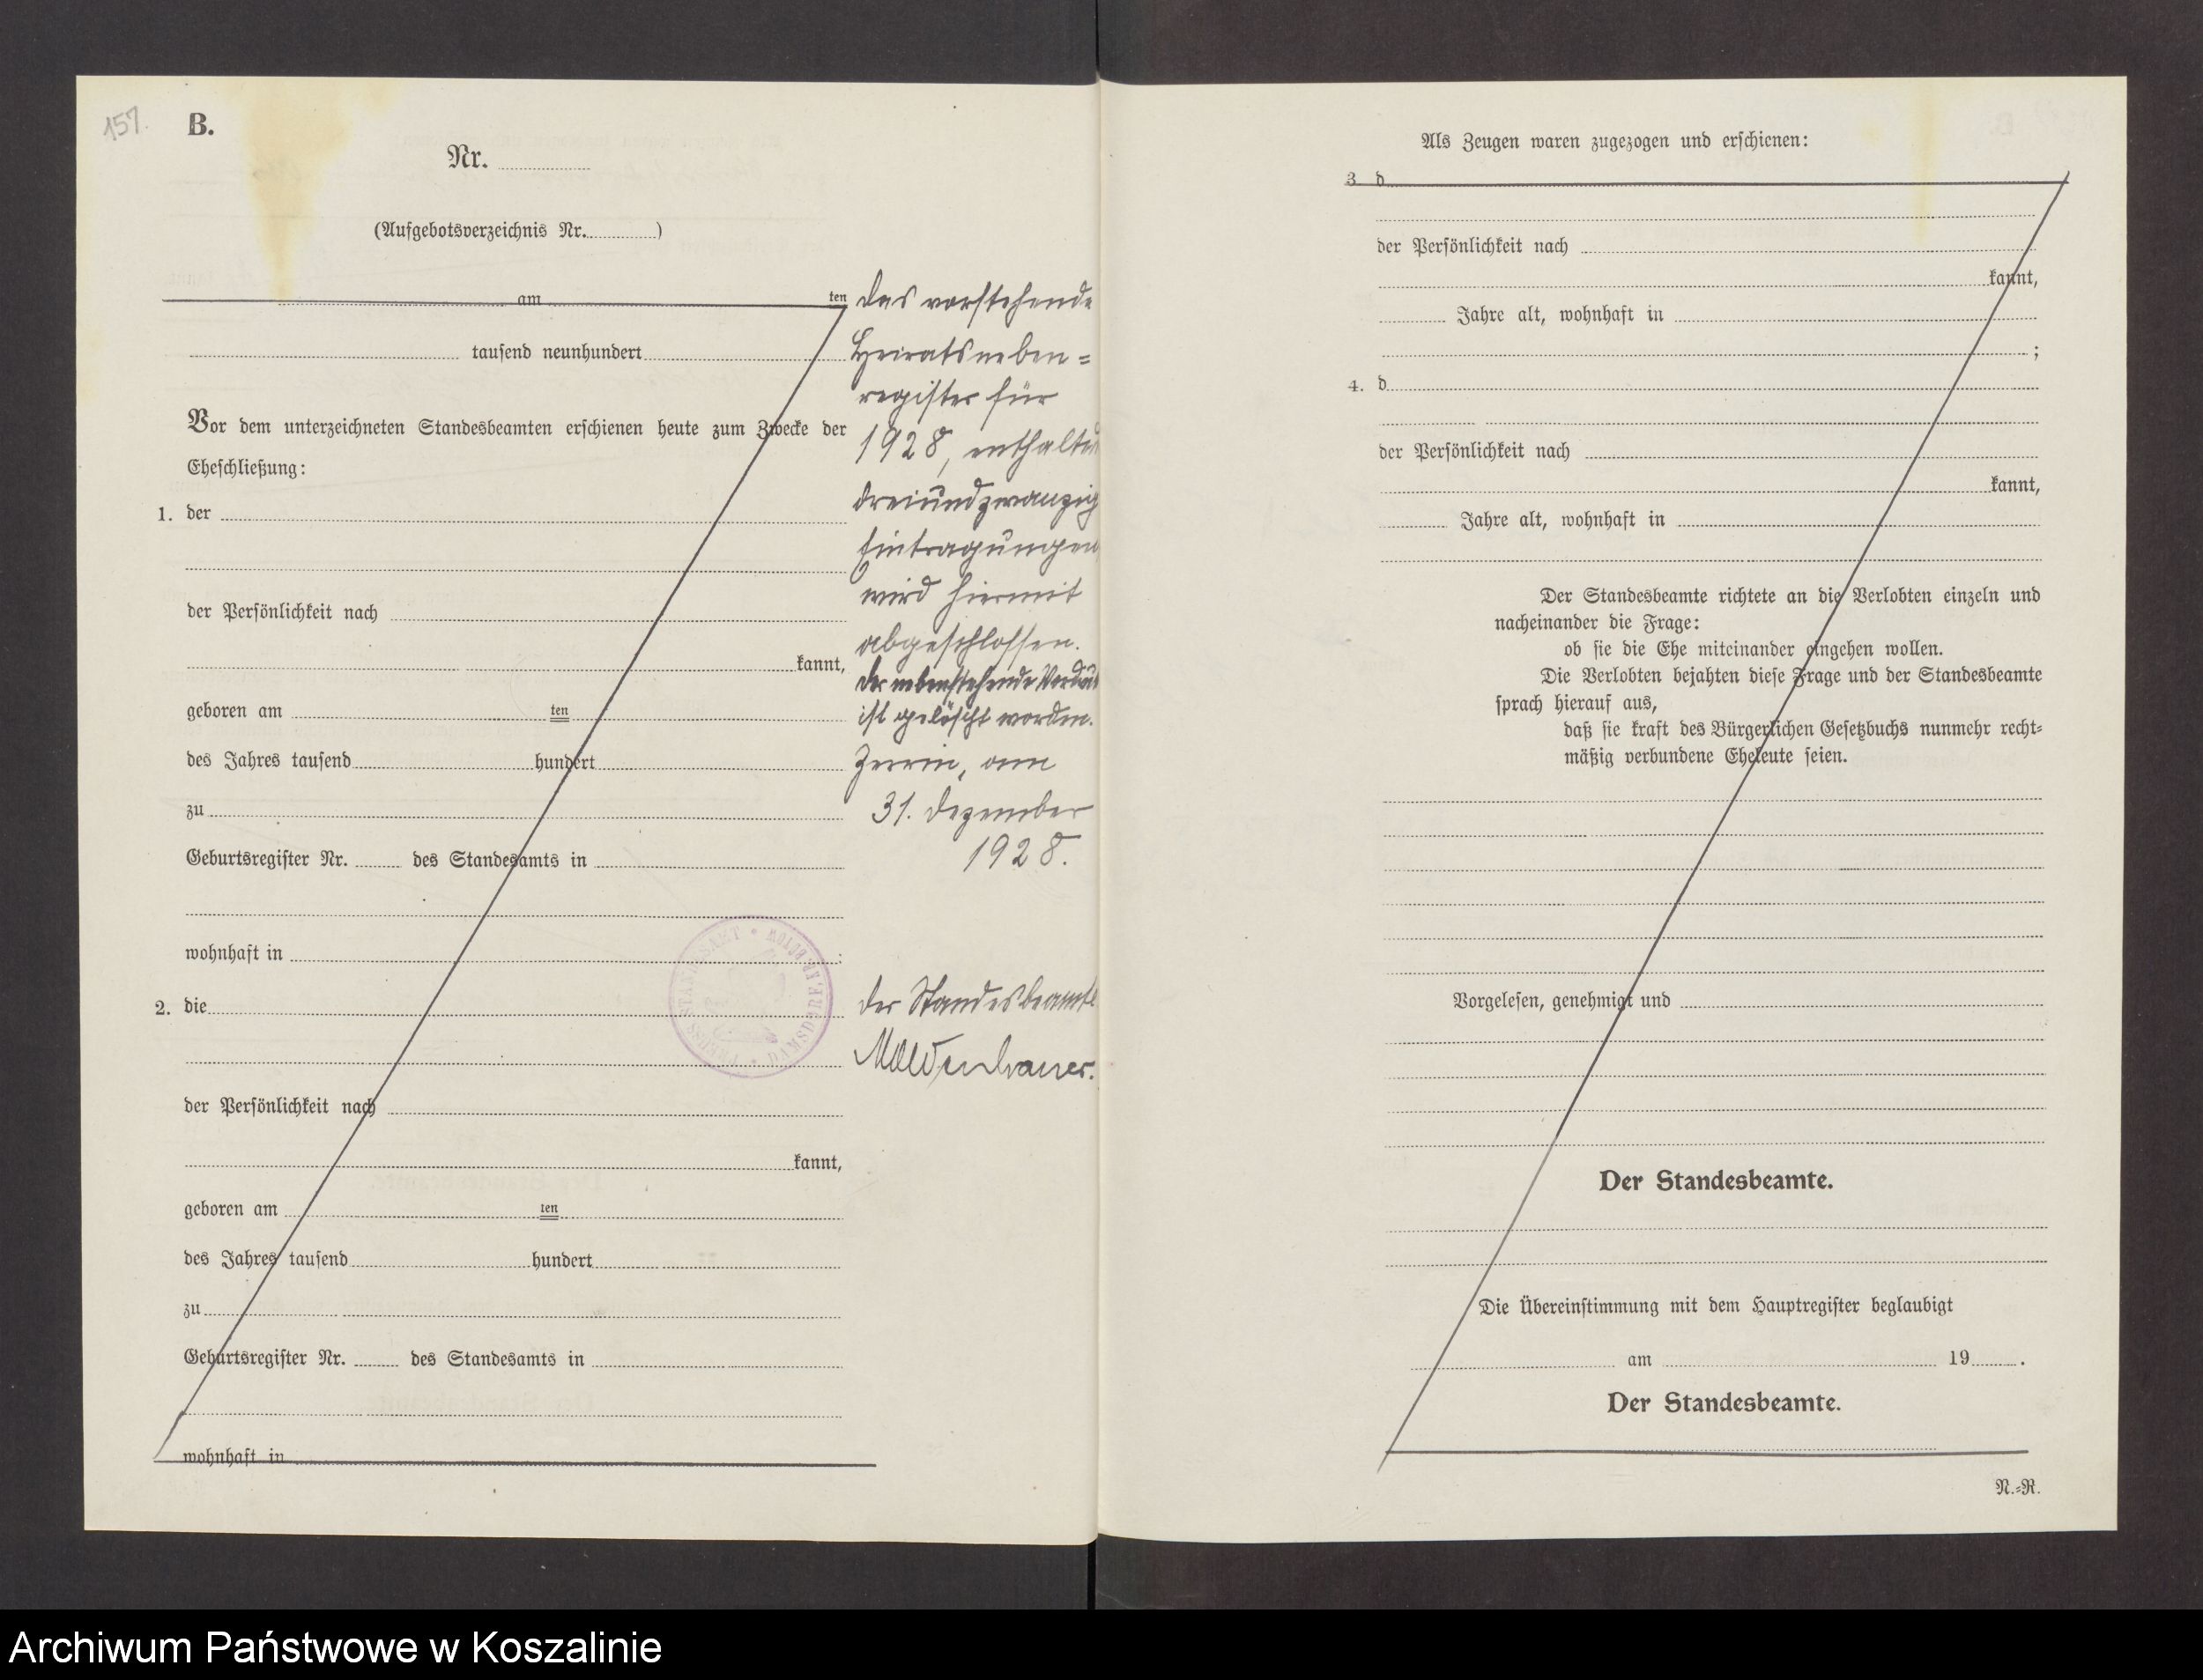 157.
B.
Nr.
(Aufgebotsverzeichnis Nr. )
am ten
tausend neunhundert
Vor dem unterzeichneten Standesbeamten erschienen heute zum Zwecke der
Eheschließung:
1. der
der Persönlichkeit nach
kannt,
geboren am ten
des Jahres tausend hundert
zu
Geburtsregister Nr. des Standesamts in
wohnhaft in ;
2. die
der Persönlichkeit nach
kannt,
geboren am ten
des Jahres tausend hundert
zu
Geburtsregister Nr. des Standesamts in
wohnhaft in
Das vorstehende
Heiratsneben=
register für
1928, enthaltend
dreiundzwanzig
Eintragungen
wird hiermit
abgeschlossen.
Der nebenstehende Vordruck
ist gelöscht worden.
Zerrin, am
31. Dezember
1928.
Der Standesbeamte
Moldenhauer.
PREUSS. STANDESAMT • DAMSDORF, KR. BÜTOW •
Als Zeugen waren zugezogen und erschienen:
3. d
der Persönlichkeit nach
kannt,
Jahre alt, wohnhaft in
;
4. d
der Persönlichkeit nach
kannt,
Jahre alt, wohnhaft in
Der Standesbeamte richtete an die Verlobten einzeln und
nacheinander die Frage:
ob sie die Ehe miteinander eingehen wollen.
Die Verlobten bejahten diese Frage und der Standesbeamte
sprach hierauf aus,
daß sie kraft des Bürgerlichen Gesetzbuchs nunmehr recht=
mäßig verbundene Eheleute seien.
Vorgelesen, genehmigt und
Der Standesbeamte.
Die Übereinstimmung mit dem Hauptregister beglaubigt
am 19 .
Der Standesbeamte.
N.=R.
Archiwum Państwowe w Koszalinie